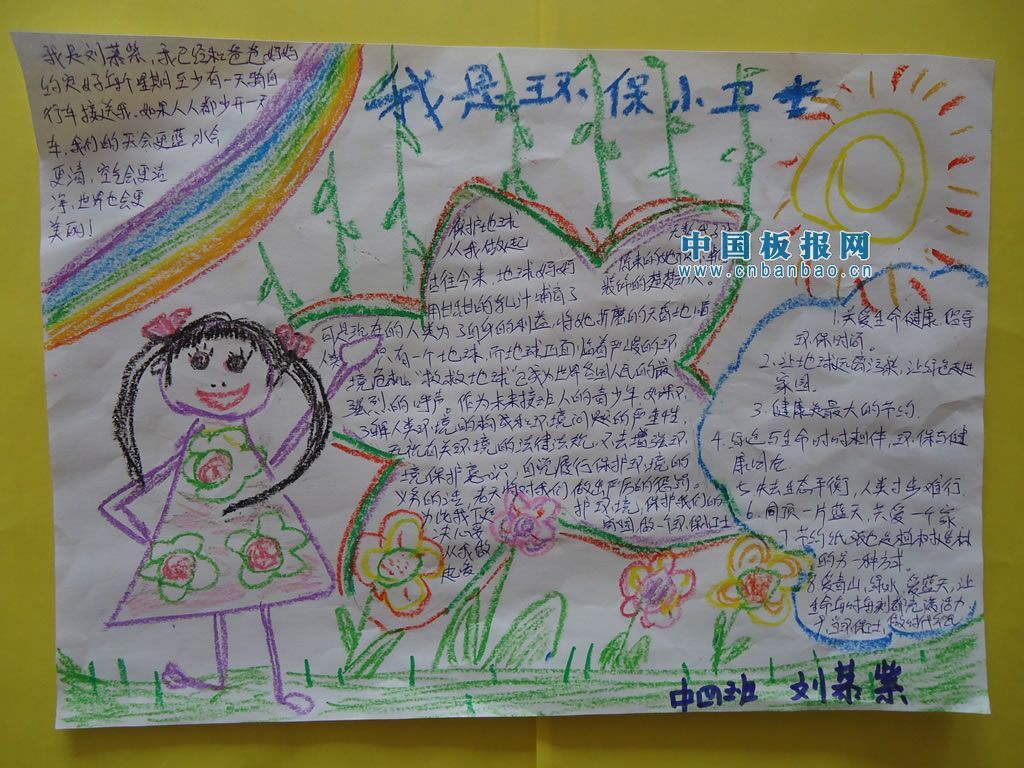 我是环保小卫士
我是刘慕紫，我已经和爸爸妈妈
约定好每个星期至少有一天骑自
行车接送我，如果人人都少开一天
车，我们的天会更蓝，水会
更清，空气会更洁
净，世界也会更
美丽！
保护地球
从我做起
古往今来，地球妈妈
用甜甜的乳汁哺育了
可是现在的人类为了自身的利益，将她折磨的
人类只有一个地球，而地球正面临着严峻的环
境危机。"救救地球"已成为世界各国人民的最
强烈的呼声。作为未来接班人的青少年，如果不
了解人类环境的构成和环境问题的严重性，
无视有关环境的法律法规，不去增强环
境保护意识，自觉履行保护环境的
义务的话，老天将对我们做出严厉的惩罚。
为此我下定
决心要
从我做
起爱
护环境，保护我们的
家园，做一个环保卫士
中国板报网
www.cnbanbao.cn
1.关爱生命健康，倡导
环保时尚。
2.让地球远离污染，让绿色走进
家园。
3.健康是最大的节约
4.绿色与生命时时相伴，环保与健
康同在
5.失去生态平衡，人类寸步难行
6.同顶一片蓝天，共爱一个家
7.节约纸张也是植树护林
的另一种方式。
8.爱青山，绿水，爱蓝天，让
生命每时每刻都充满活力
中四班 刘慕紫